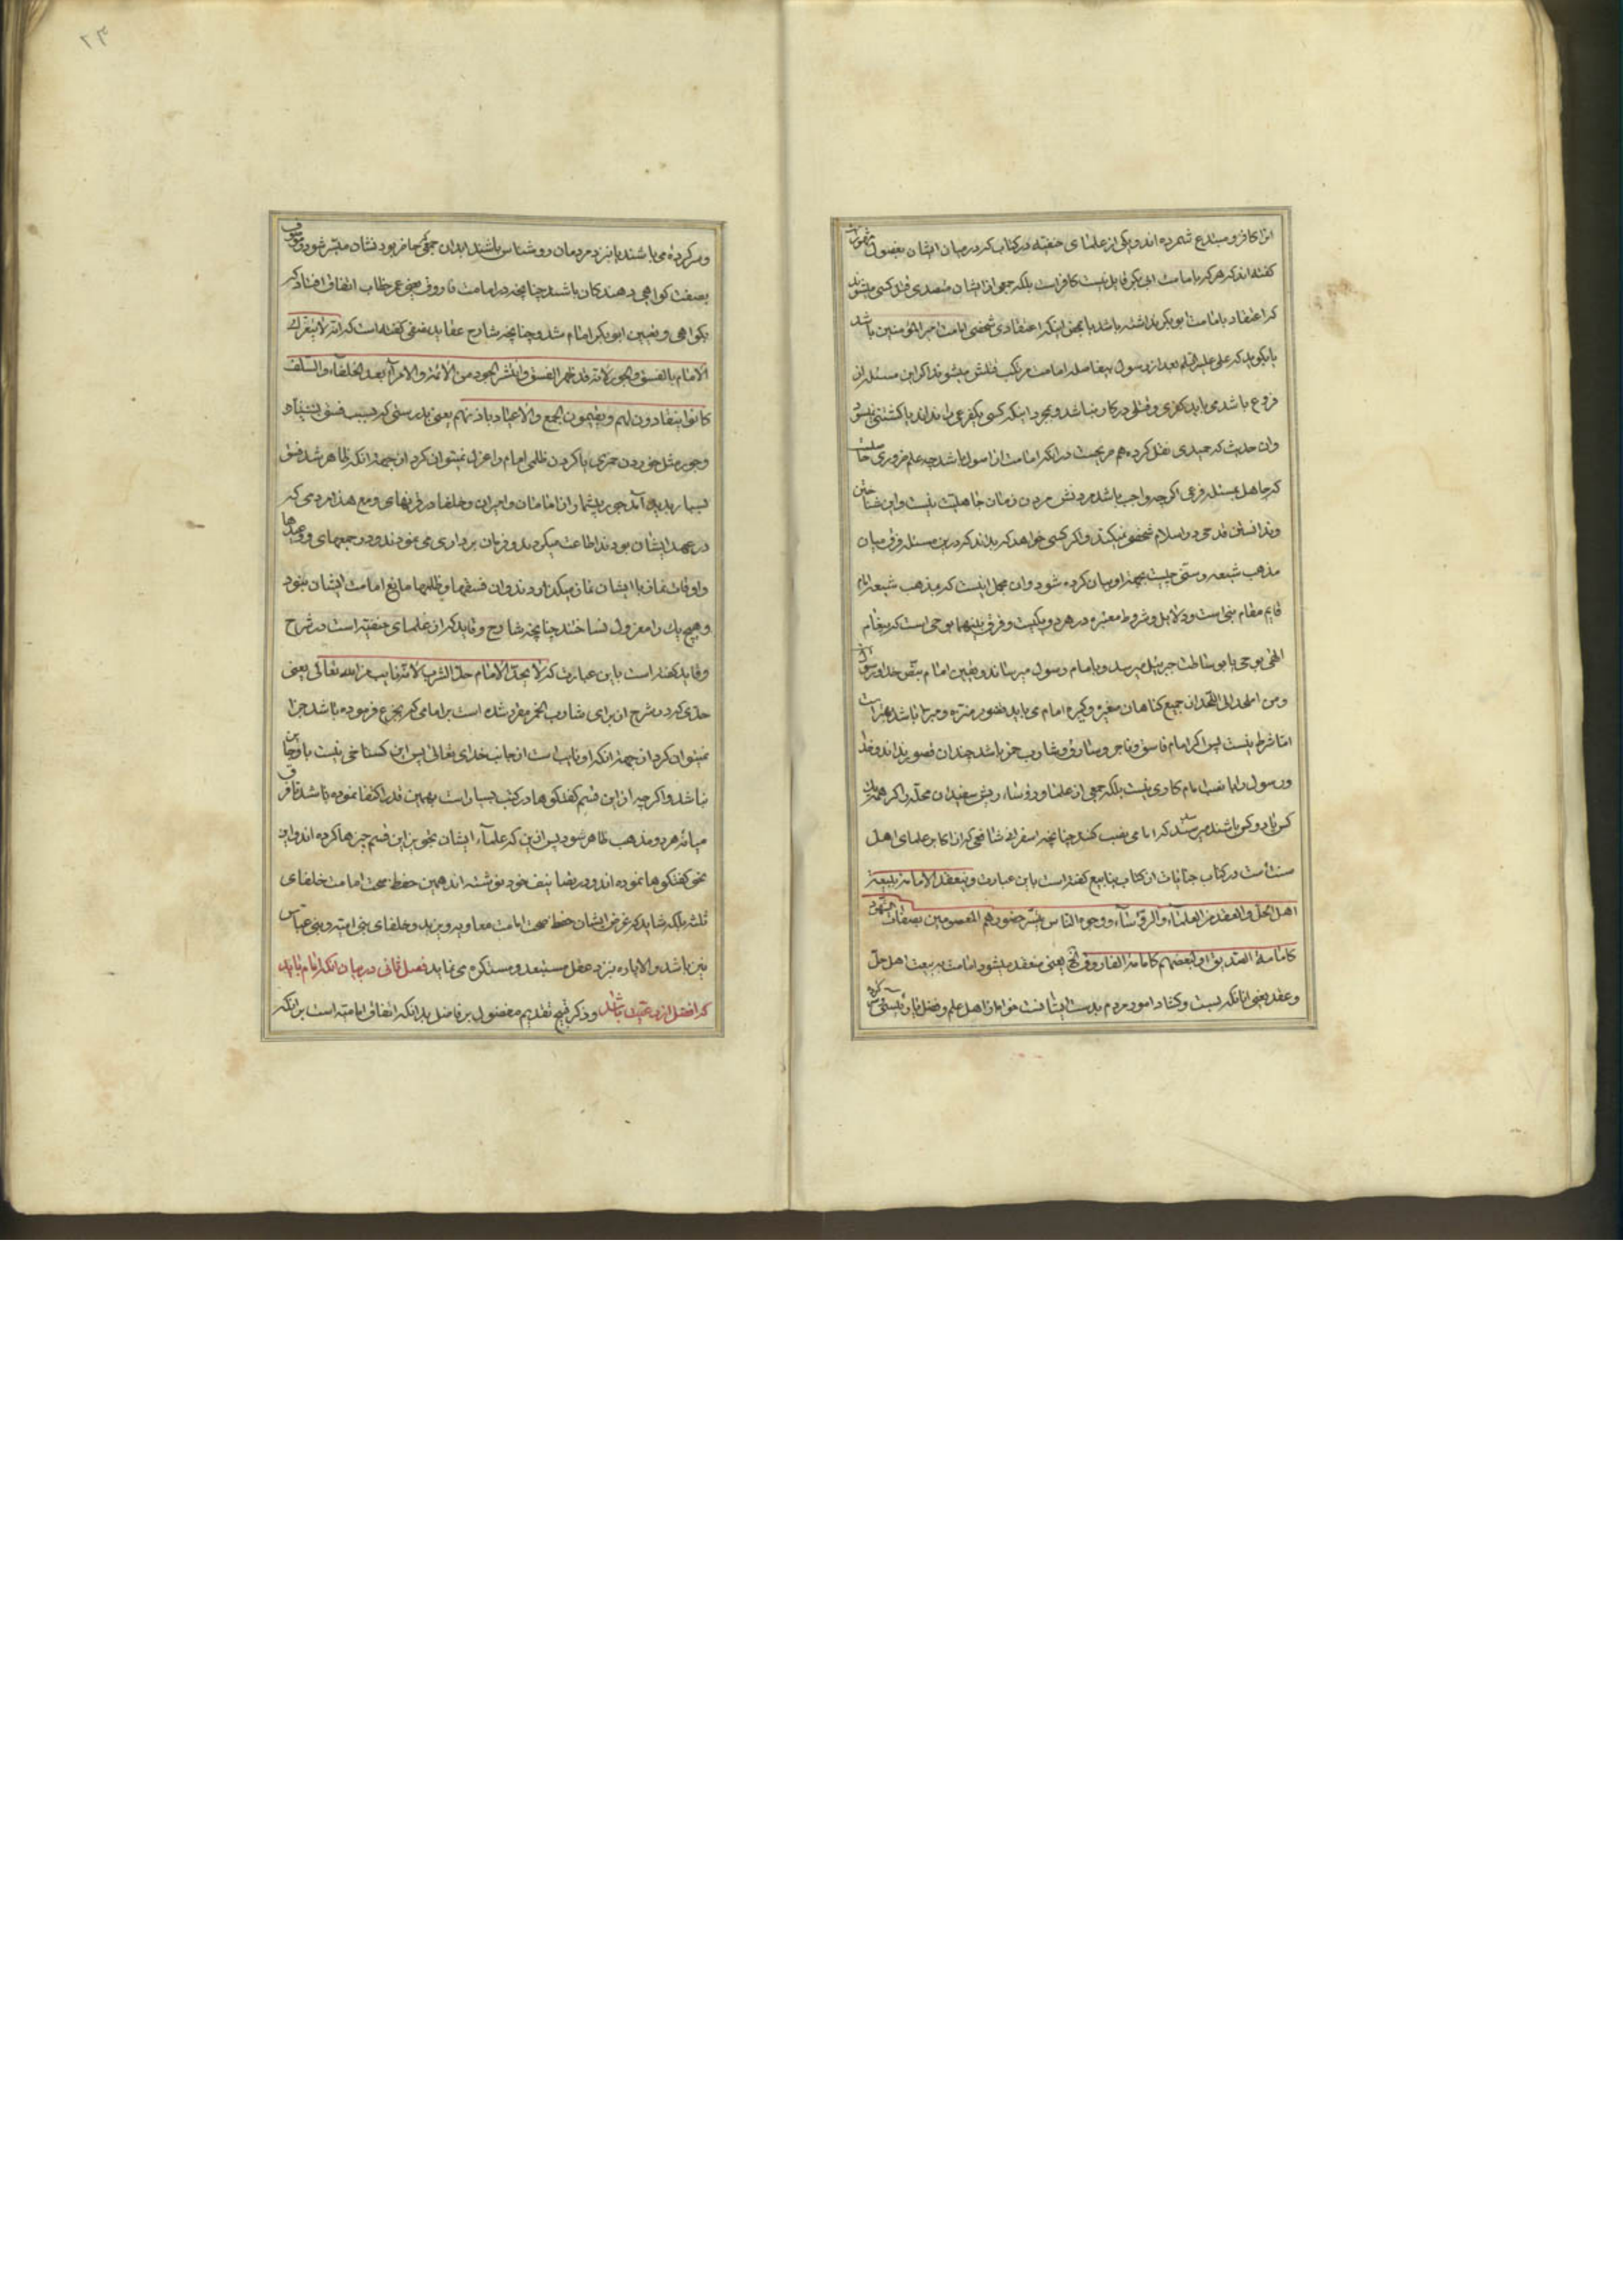 انرا کافر و مبتدع شمرده اند و یکی از علمای حنفیه در کتاب که در میان ایشان بفصول مشهور است
گفته اند که هر که بامامت ابی بکر قایل نیست کافر است بلکه جمعی از ایشان متصدی قتل کسی میشوند
که اعتقاد بامامت ابو بکر نداشته باشد یا بمحض اینکه اعتقاد شخصی امامت امیر المؤمنین باشد
یا بگوید که علی علیه السلم بعد از رسول بیفاصله امامست مرتکب قتلش میشوند اگر این مسئله از
فروع باشد می باید کفری و قتلی در کار نباشد و بمجرد اینکه کسی یک فرعی را نداند یا کشتنی نمیشود
وان حدیث که حمیدی نقل کرده هم صریحست در انکه امامت از اصول باشد چه علم ضروری حاصلست
که جاهل بمسئله فرعی اگرچه واجب باشد مردنش مردن زمان جاهلیت نیست و این شناختن
و ندانستن قدحی در اسلام شخصی نمیکند و اگر کسی خواهد که بداند که درین مسئله فرق میان
مذهب شیعه و سنی چیست بجهة او بیان کرده شود وان مجمل اینست که بمذهب شیعه امام
قایم مقام نبی است و دلایل و شروط معتبره در هر دو یکیست و فرق بینهما بوحی است که پیغام
الهی بوحی یا بوساطت جبرئیل میرسد و بامام رسول میرساند و تعیین امام بنص خدا و رسول
و من المهد الی اللحد از جمیع گناهان صغیره و کبیره امام می باید منزه و مبرا باشد
اما شرط نیست پس اگر امام فاسق و فاجر و سارق و شارب خمر باشد چندان قصور ندارد و خدا
و رسول را با نصب امام کاری نیست بلکه جمعی از علما و رؤساء و ریش سفیدان محله و اگر همه یک
کس یا دو کس باشند میرسند که امامی نصب کنند چنانچه اسفراینی شافعی که از اکابر علمای اهل
سنت است در کتاب جنایات از کتاب ینابیع گفته است باین عبارت و ینعقد الامامة ببیعة
اهل الحل والعقد من العلماء والرؤساء ووجوه الناس یتیسر حضورهم الموصوفین بصفات الشهود
کامامة الصدیق او ببعضهم کامامة الفاروق الخ یعنی منعقد میشود امامت به بیعت اهل حل
و عقد یعنی انانکه بست و کشاد امور مردم بدست ایشانست خواه از اهل علم و فضل یا ریش
و سر کرده می باشند یا نزد مردمان روشناس باشند حاضر بودنشان میسر شود و موصوف
بصفت گواهی دهندکان باشند چنانچه در امامت فاروق یعنی عمر خطاب اتفاق افتاد که
بگواهی و تعیین ابو بکر امام شد و چنانچه شارح عقاید نسفی گفته است که انه لا ینعزل
الامام بالفسق والجور لانه قد ظهر الفسق وانتشر الجور من الائمة والامرآء بعد الخلفآء والسلف
کانوا ینقادون لهم ویقیمون الجمع والاعیاد باذنهم یعنی بدرستی که بسبب فسق
و جور مثل خوردن خمری یا کردن ظلمی امام را عزل نمیتوان کرد از جهة انکه ظاهر شد فسق
بسیار پدید آمد جور بیشمار از امامان و امیران و خلفا در زمانهای و مع هذا مردمی که
در عهد ایشان بودند اطاعت میکردند و فرمان برداری می نمودند و در جمعهای و عیدها
و اوقات نماز با ایشان نماز میگذاردند و ان فسقها و ظلمها مانع امامت ایشان نبود
و هیچ یک را معزول نساختند چنانچه شارح وقایه که از علمای حنفیه است در شرح
وقایه گفته است باین عبارت که لا یحد الامام حد الشرب لانه نایب من الله تعالی یعنی
حدی که در شرع از برای شارب الخمر مقرر شده است بر امامی که فرموده باشد جرا
نمیتوان کرد از جهة انکه او نایب است از جانب خدای تعالی پس این گستاخی نسبت باو جایز
نباشد و اگرچه ازین قسم گفتگوها در کتب بسیار است بهمین قدر اکتفا نموده تا شد تا فرق
میانه هر دو مذهب ظاهر شود پس ازین که علمآء ایشان تجویز این قسم چیزها کرده اند و این
نحو گفتگوها نموده اند و در تصانیف خود نوشته اند همین حفظ صحت امامت خلفای
ثلثه بلکه شاید که غرض ایشان حفظ صحت امامت معاویه و یزید و خلفای بنی امیه و بنی عباس
نیز باشد و الا نزد عقل مستبعد و مستنکره می نماید فصل ثانی در بیان انکه امام باید
که افضل از رعیت باشد و ذکر قبح تقدیم مفضول بر فاضل بدانکه اتفاق امامیه است بر انکه